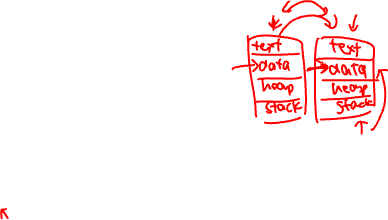 text
data
heap
stack
text
data
heap
stack